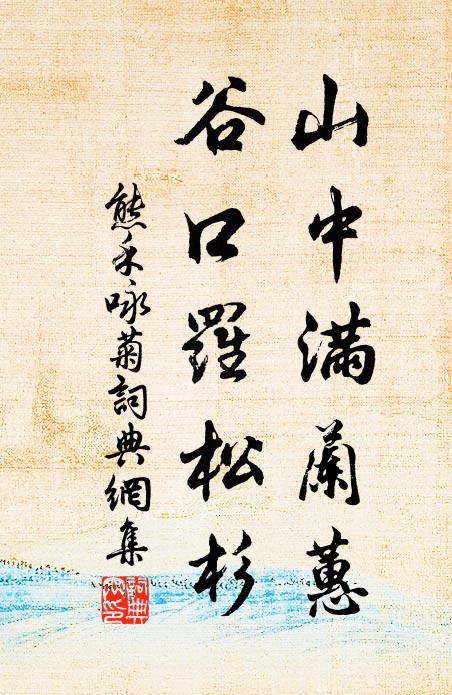 山中滿蘭蕙
谷口羅松杉
熊禾咏菊詞典網集